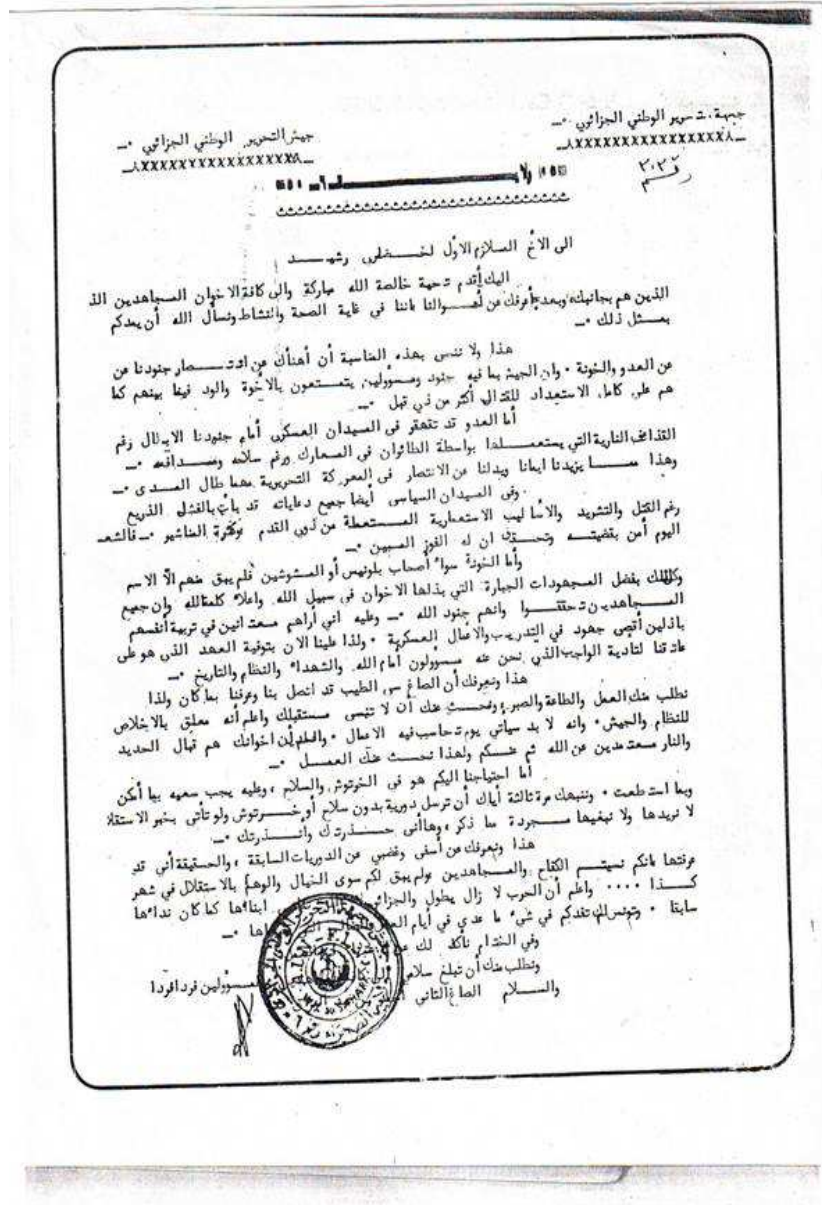 جبهة التحرير الوطني الجزائري
جيش التحرير الوطني الجزائري
رقم
الى الاخ الملازم الاول لخضاري رشيد
اليك أقدم تحية خالصة الله مباركة والى كافة الاخوان المجاهدين الذ
الذين هم بجانبك وبعد أعرفك عن أحوالنا باننا في غاية الصحة والنشاط ونسأل الله أن يمدكم
بمثل ذلك
هذا ولا ننسى بهذه المناسبة أن أهنأك عن انتصار جنودنا عن
عن العدو والخونة وان الجيش بما فيه جنود ومسؤولين يتمتعون بالأخوة والود فيما بينهم كما
هم على كامل الاستعداد للقتال أكثر من ذي قبل
أما العدو قد تقهقر في الميدان العسكري أمام جنودنا الابطال رغم
القذائف النارية التي يستعملها بواسطة الطائران في المعارك ورغم سلاحه ومدافعه
وهذا مما يزيدنا ايمانا ويدلنا عن الانتصار في المعركة التحريرية مهما طال المدى
وفي الميدان السياسي أيضا جميع دعاياته قد بائت بالفشل الذريع
رغم القتل والتشريد والأساليب الاستعمارية المستعملة من ذوي القدم وكثرة المناشير فالشعب
اليوم أمن بقضيته وتحقق ان له الفوز المبين
وأما الخونة سواء أصحاب بلونيس أو المشوشين فلم يبق منهم الا الاسم
وكل ذلك بفضل المجهودات الجبارة التي بذلها الاخوان في سبيل الله واعلاء كلمة الله وان جميع
المجاهدين تحققوا وانهم جنود الله وعليه اني أراهم مستعدين في تربية أنفسهم
باذلين أقصى جهود في التدريب والاعمال العسكرية ولذا علينا الان بتوفية العهد الذي هو على
عاتقنا لتادية الواجب الذي نحن عنه مسؤولون أمام الله والشهداء والنظام والتاريخ
هذا ونعرفك أن الصاغ سي الطيب قد اتصل بنا وعرفنا بما كان ولذا
نطلب منك العمل والطاعة والصبر ونحث عنك أن لا تنسى مستقبلك واعلم أنه معلق بالاخلاص
للنظام والجيش وانه لا بد سياتي يوم تحاسب فيه الاعمال واعلم أن اخوانك هم قبال الحديد
والنار مستمدين عن الله ثم عنكم ولهذا نحث عنك العمل
أما احتياجنا اليكم هو في الخرتوش والسلام وعليه يجب سعيه بما أمكن
وبما استطعت وننبهك مرة ثالثة أياك أن ترسل دورية بدون سلاح أو خرتوش ولو تأتي بخبر الاستقلا
لا نريدها ولا نبغيها مجردة مما ذكر وهاأنى حذرتك وأنذرتك
هذا ونعرفك عن أسفي وغضبي عن الدوريات السابقة والحقيقة أني قد
عرفتها بانكم نسيتم الكفاح والمجاهدين ولم يبق لكم سوى الخيال والوهم بالاستقلال في شهر
كذا .... واعلم أن الحرب لا زال يطول والجزائر ابنائها كما كان نداءها
سابقا وتونس لن تفدكم في شيء ما عدى في أيام
وفي الختام نأكد لك
ونطلب منك أن تبلغ سلامي مسؤولين فردا فردا
والسلام الصاغ الثاني